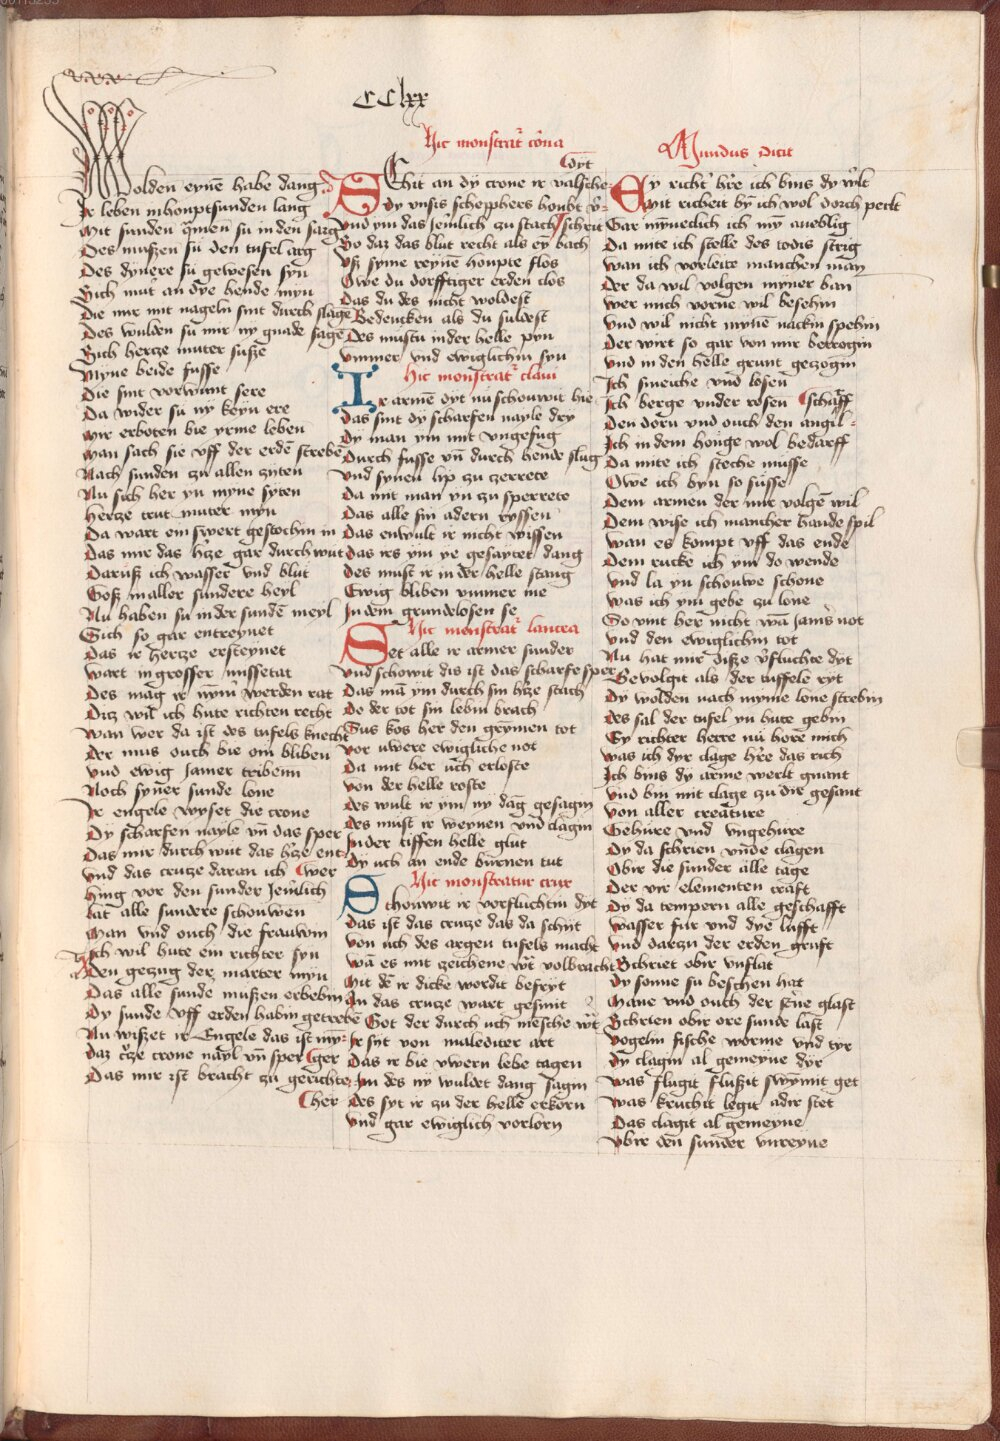 CClxx
Wolden eynē habe dang
Ir leben in houptsunden lang
Mit sunden qmen su in den sarg
Des mußen su den tufel arg
Des dynere su gewesen syn
Sich mut an dye hende myn
Die mir mit nageln sint durch slage
Des wulden su mir ny gnade sagē
Sich hercze muter suße
Myne beide fusse
Die sint vorwunt sere
Da wider su ny keyn ere
Mir erboten bie yrme leben
Man sach sie vff der erdē streben
Nach sunden zu allen zyten
Nu sich her yn myne syten
Hercze trut muter myn
Da wart ein swert gestochin in
Das mir das hcze gar durch wut
Daruß ich wasser vnd blut
Goß in aller sundere heyl
Nu haben su in der sundē meyl
Sich so gar entreynet
Das ir hercze ersteynet
Wart in grosser missetat
Des mag ir nym werden rat
Diz wil ich hute richten recht
Wan wer da ist des tufels knecht
Der mus ouch bie om bliben
Vnd ewig Jamer triben
Noch syner sunde lone
Ir engele wyset die crone
Dy scharfen nayle vn das sper
Das mir durch wut das hcze
Vnd das crucze daran ich
Hing vor den sunder Jemlich
Lat alle sundere schouwen
Man vnd ouch die frauwin
Ich wil hute ein richter syn
Den gezug der marter myn
Das alle sunde mußen erbebin
Dy sunde vff erden habin getrebē
Nu wißet ir Engele das ist
Daz crone nayl vn sper
Das mir ist bracht zu gerichte
Hic monstrat coͦna
Sehit an dy crone ir valsche
dyt
Dy vnsis schepphers houbt
Vnd ym das Jemlich zu stach
schrit
So daz das blut recht als ey bach
Vß syme reynē houpte flos
Owe du dorfftiger erden clos
Das du des nicht woldest
Bedencken als du suldest
Des mustu in der helle pyn
Vmmer vnd ewiglichin syn
Hic monstrat claui
Ir armē dyt nu schouwit hie
Das sint dy scharfen nayle dry
Dy man ym mit vngefug
Durch fusse vn durch hende slug
Vnd synen lip zu zerrete
Da mit man yn zu sperrete
Das alle sin adern ryssen
Das enwult ir nicht wissen
Das irs ym ye gesaytet dang
Des must ir in der helle stang
Ewig bliben vmmer me
In dem grundelosen se
Hic monstrat lancea
Set alle ir armer sunder
Vnd schowit dis ist das scharfe sper
Das mā ym durch sin hcze stach
Do der tot sin lebin brach
Sus kos her den grymen tot
Vor uwere ewigliche not
Da mit her uch erloste
Von der helle roste
Des wult ir ym ny dag gesagin
Des must ir weynen vnd clagin
In der tiffen helle glut
Dy uch an ende burnen tut
Hic monstratur crux
Schouwit ir vorfluchtin dyt
Das ist das crucze das da schyt
Von uch des argen tufels macht
Wā es mit zeichene wt volbracht
Mit dē ir dicke wordit befryt
An das crucze wart gesmit
Got der durch uch mēsche wt
Ir syt von maledicter art
Das ir bie uwern lebe tagen
Im des ny wuldet dang sagin
Des syt ir zu der helle erkorn
Vnd gar ewiglich vorlorn
Mundus dicit
Ey richter hre ich bins dy wlt
Mit richeit by ich wol dorch pecht
Gar mynneclich ich my aneblig
Da mite ich stelle des todis strig
Wan ich vorleite manchen man
Der da wil volgen myner ban
Wer mich vorne wil besehin
Vnd wil nicht mynē nackin spehin
Der wirt so gar von mir betrogin
Vnd in den helle grunt gezogin
Ich smeiche vnd losen
Ich berge vnder rosen
scharff
Den dorn vnd ouch den angil
Ich in dem honge wol bedarff
Da mite ich steche musse
Owe ich byn so susse
Dem armen der mir volgē wil
Dem wise ich mancher hande spil
Wan es kompt vff das ende
Dem rucke ich ym do wende
Vnd la yn schouwe schone
Was ich ym gebe zu lone
So vint her nicht wā Jamirs not
Vnd den ewiglichin tot
Nu hat mir diße vfluchte dyt
Gevolgit als der tuffele ryt
Dy wolden nach myme lone strebin
Des sal der tufel yn hute gebin
Ey richter herre nu hore mich
Was ich dyr clage hre das rich
Ich bins dy arme werlt gnant
Vnd bin mit clage zu dir gesant
Von aller creature
Gehure vnd vngehure
Dy da schrien vnde clagen
Obir die sunder alle tage
Der vir elementen craft
Dy da tempern alle geschafft
Wasser fur vnd dye lufft
Vnd darzu der erden gruft
Schriet obir vnflat
Dy sonne su beschen hat
Mane vnd ouch der sterne glast
Schrien obir ore sunde last
Vogelin fische worme vnd tyr
Dy clagin al gemeyne dyr
Was flugit flußit swymit get
Was kruchit legit adir stet
Das clagit al gemeyne
Vbir den sunder vnreyne